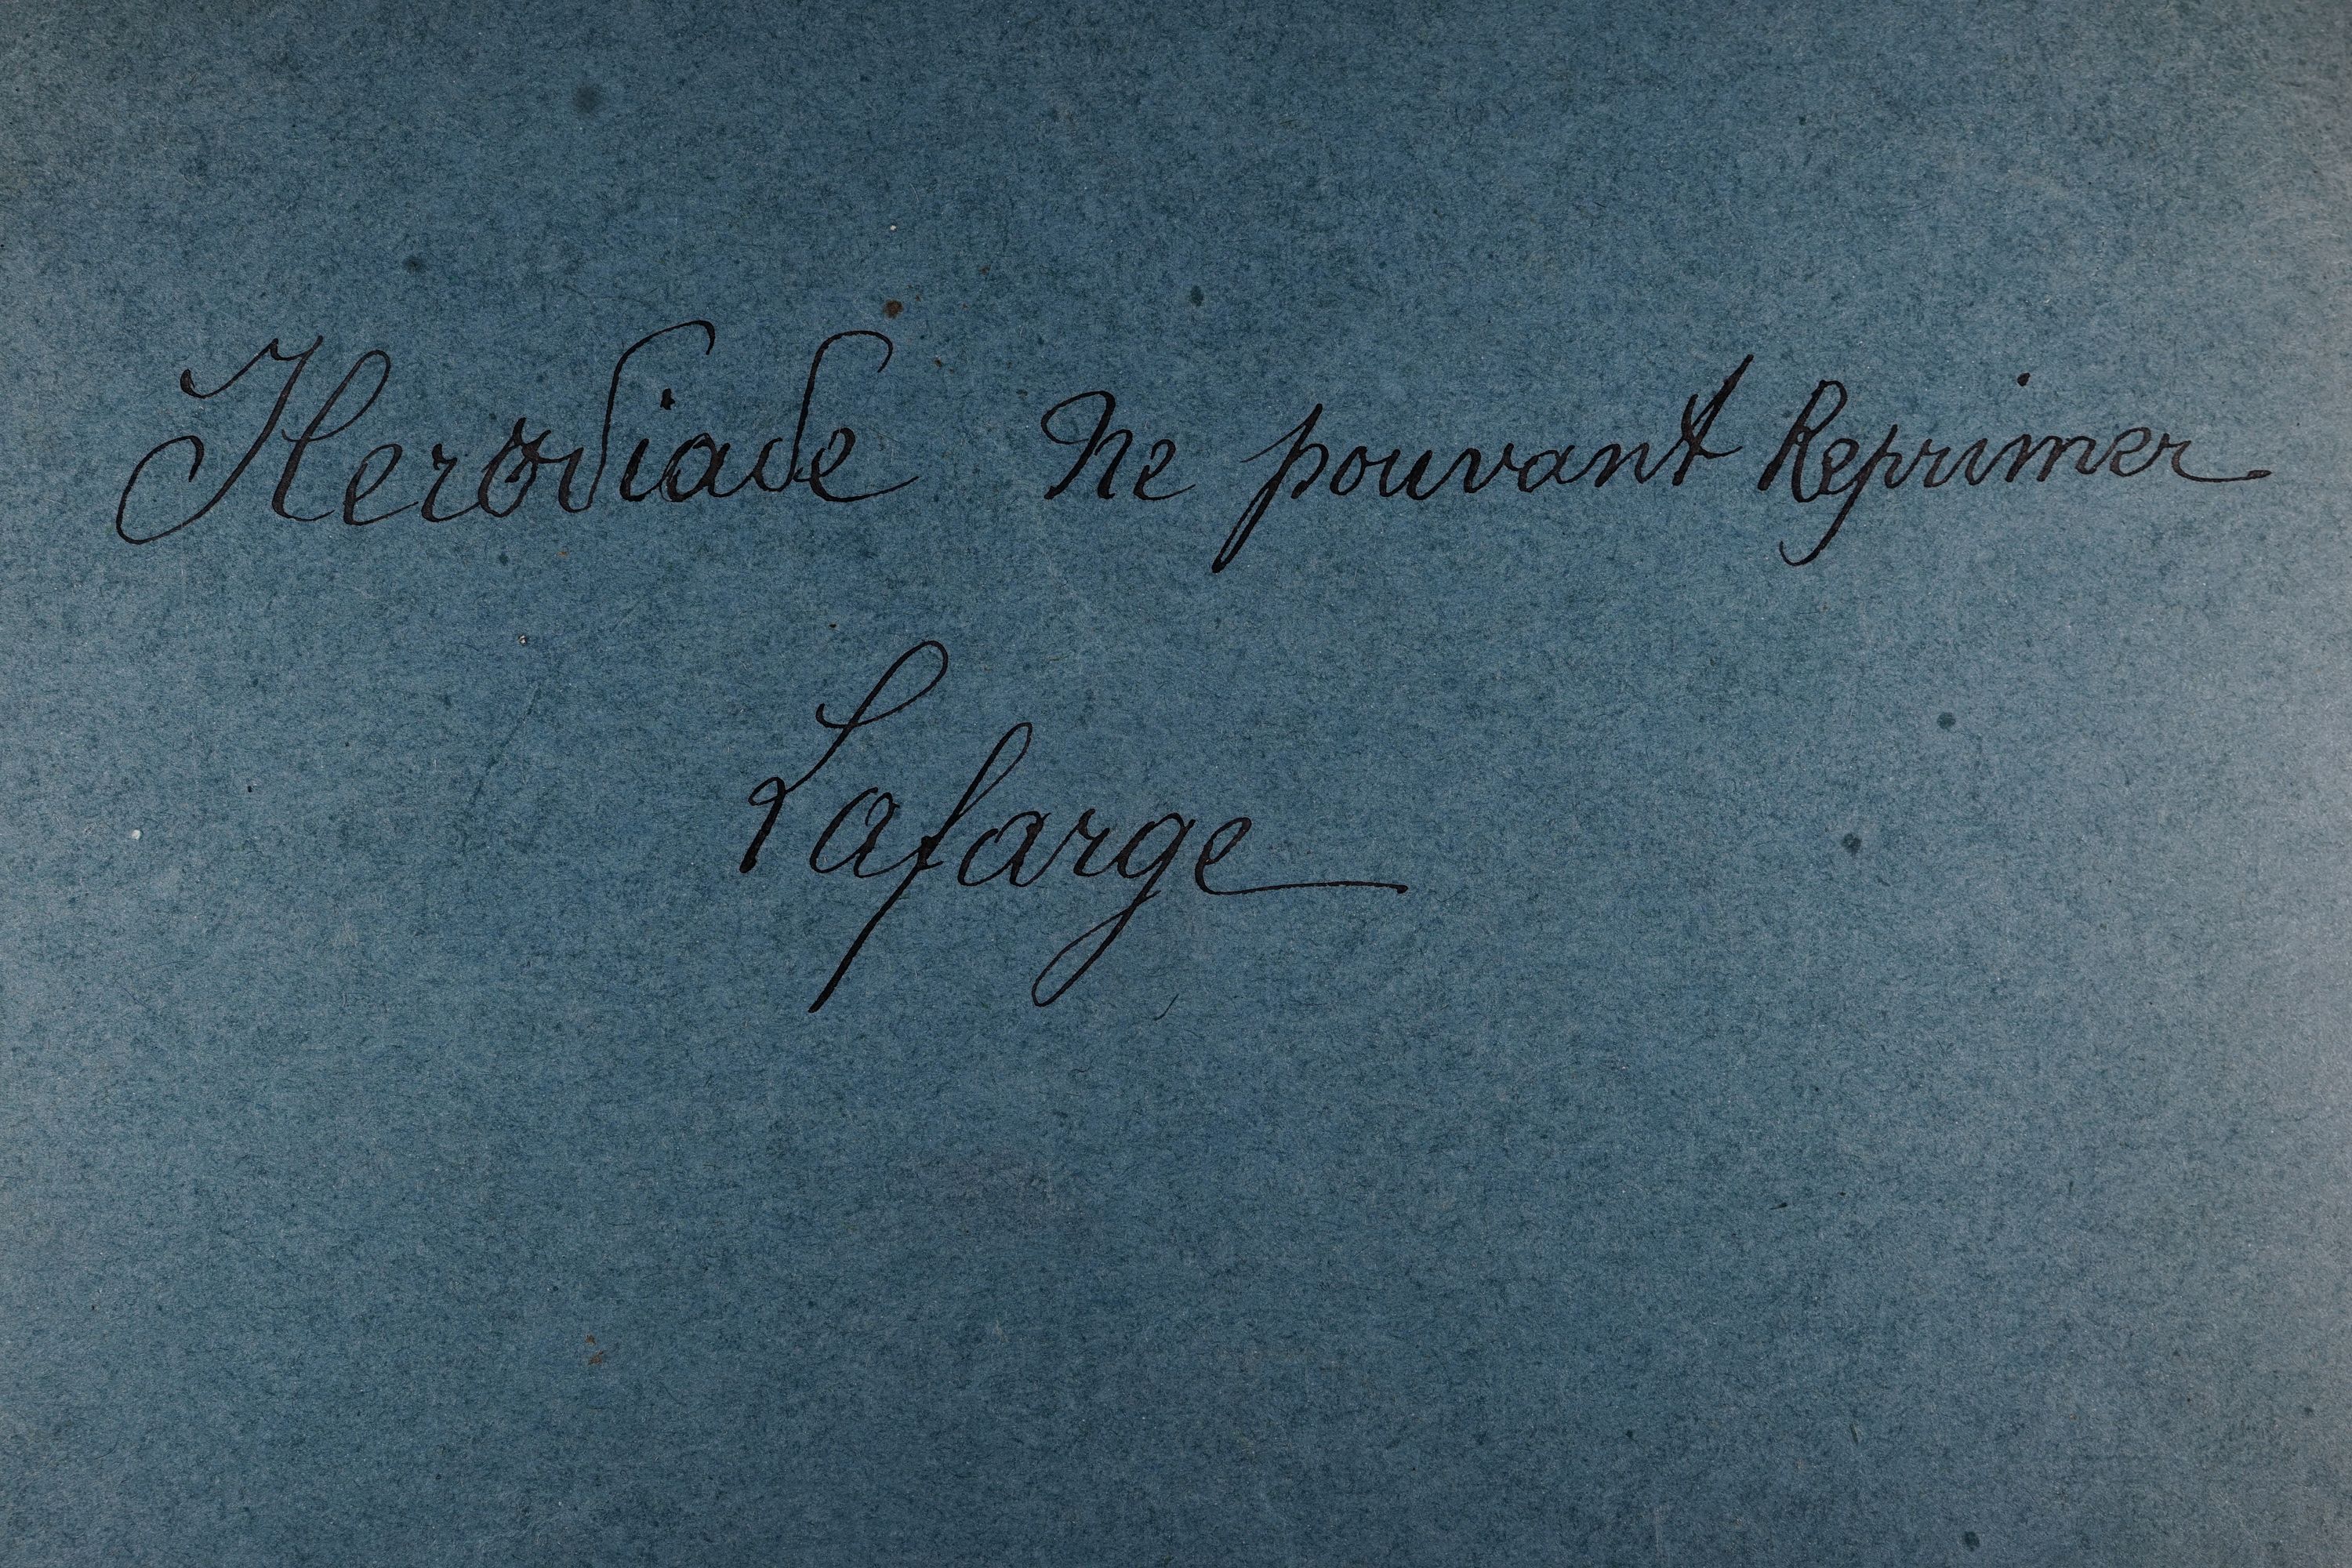 Herodiade Ne pouvant Reprimer
Lafarge